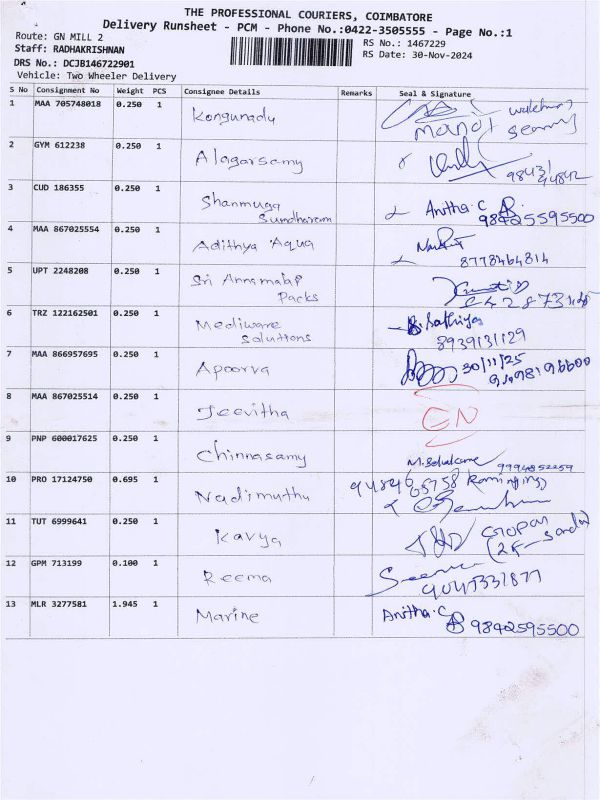 THE PROFESSIONAL COURIERS, COIMBATORE
Delivery Runsheet - PCM - Phone No.:0422-3505555 - Page No.:1
Route: GN MILL 2
Staff: RADHAKRISHNAN
RS No.: 1467229
RS Date: 30-Nov-2024
DRS No.: DCJB146722901
Vehicle: Two Wheeler Delivery
S No Consignment No Weight PCS Consignee Details Remarks Seal & Signature
1 MAA 705748018 0.250 1 Kongunadu
2 GYM 612238 0.250 1 Alagarsamy
3 CUD 186355 0.250 1 Shanmuga Sundharam Anitha.C 98425595500
4 MAA 867025554 0.250 1 Adithya Aqua 8778464814
5 UPT 2248208 0.250 1 Sri Annamalai Packs
6 TRZ 122162501 0.250 1 Mediware Solutions S.Sathiya 8939131129
7 MAA 866957695 0.250 1 Apoorva 30/11/25
8 MAA 867025514 0.250 1 Jeevitha GN
9 PNP 600017625 0.250 1 Chinnasamy 9994852259
10 PRO 17124750 0.695 1 Nadimuthu
11 TUT 6999641 0.250 1 Kavya
12 GPM 713199 0.100 1 Reema
13 MLR 3277581 1.945 1 Marine Anitha.C 9842595500